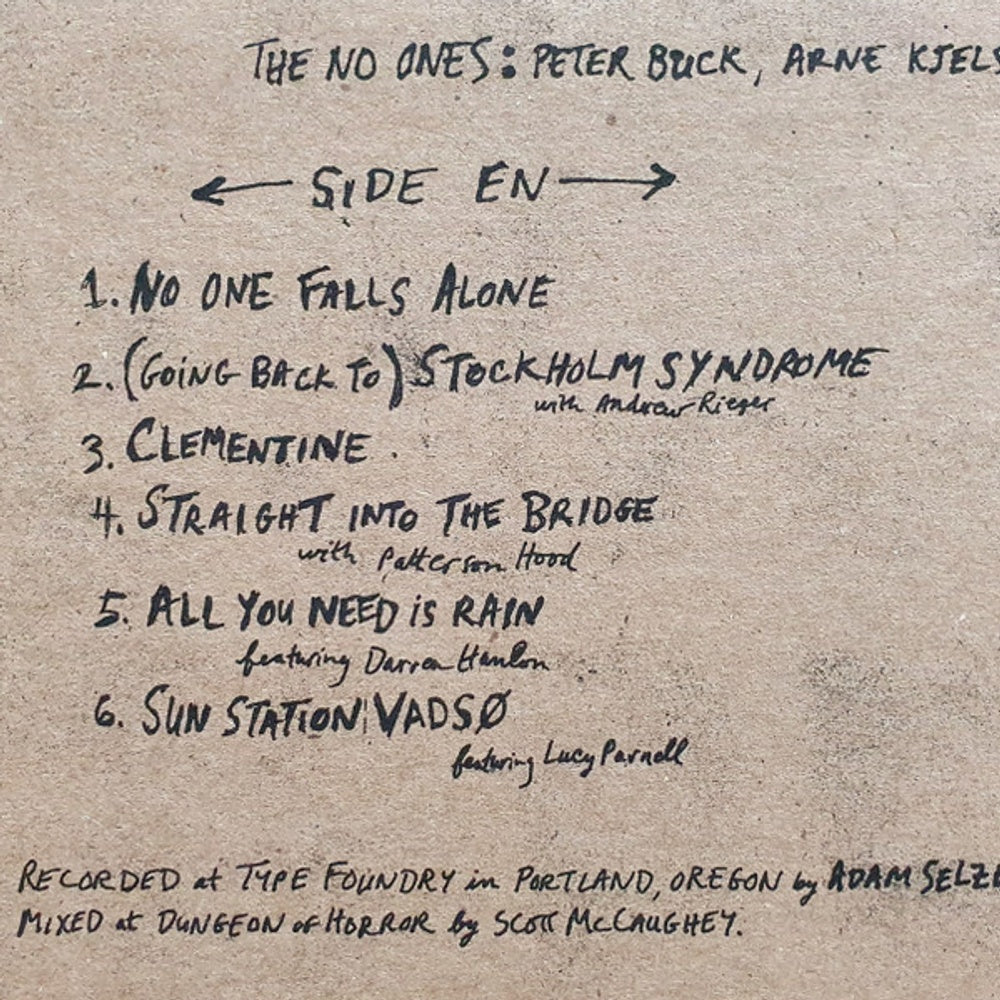 THE NO ONES: PETER BUCK, ARNE KJELS
← SIDE EN →
1. NO ONE FALLS ALONE
2. (GOING BACK TO) STOCKHOLM SYNDROME
with Andrew Rieger
3. CLEMENTINE
4. STRAIGHT INTO THE BRIDGE
with Patterson Hood
5. ALL YOU NEED iS RAIN
featuring Darren Hanlon
6. SUN STATION VADSØ
featuring Lucy Parnell
RECORDED at TYPE FOUNDRY in PORTLAND, OREGON by ADAM SELZE
MIXED at DUNGEON of HORROR by SCOTT McCAUGHEY.